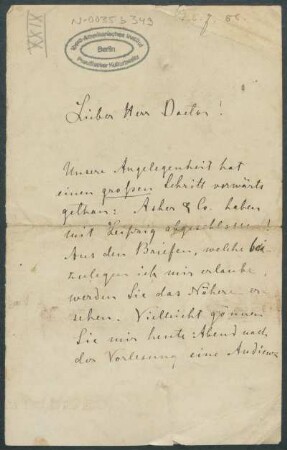 N-0035 b 349
XXIX
Ibero-Amerikanisches Institut
Berlin
Preußischer Kulturbesitz
Lieber Herr Doctor!
Unsere Angelegenheit hat
einen großen Schritt vorwärts
gethan: Asher & Co. haben
mit Leipzig abgeschlossen!
Aus den Briefen, welche bei-
zulegen ich mir erlaube,
werden Sie das Nähere er-
sehen. Vielleicht gönnen
Sie mir heute Abend nach
der Vorlesung eine Audienz